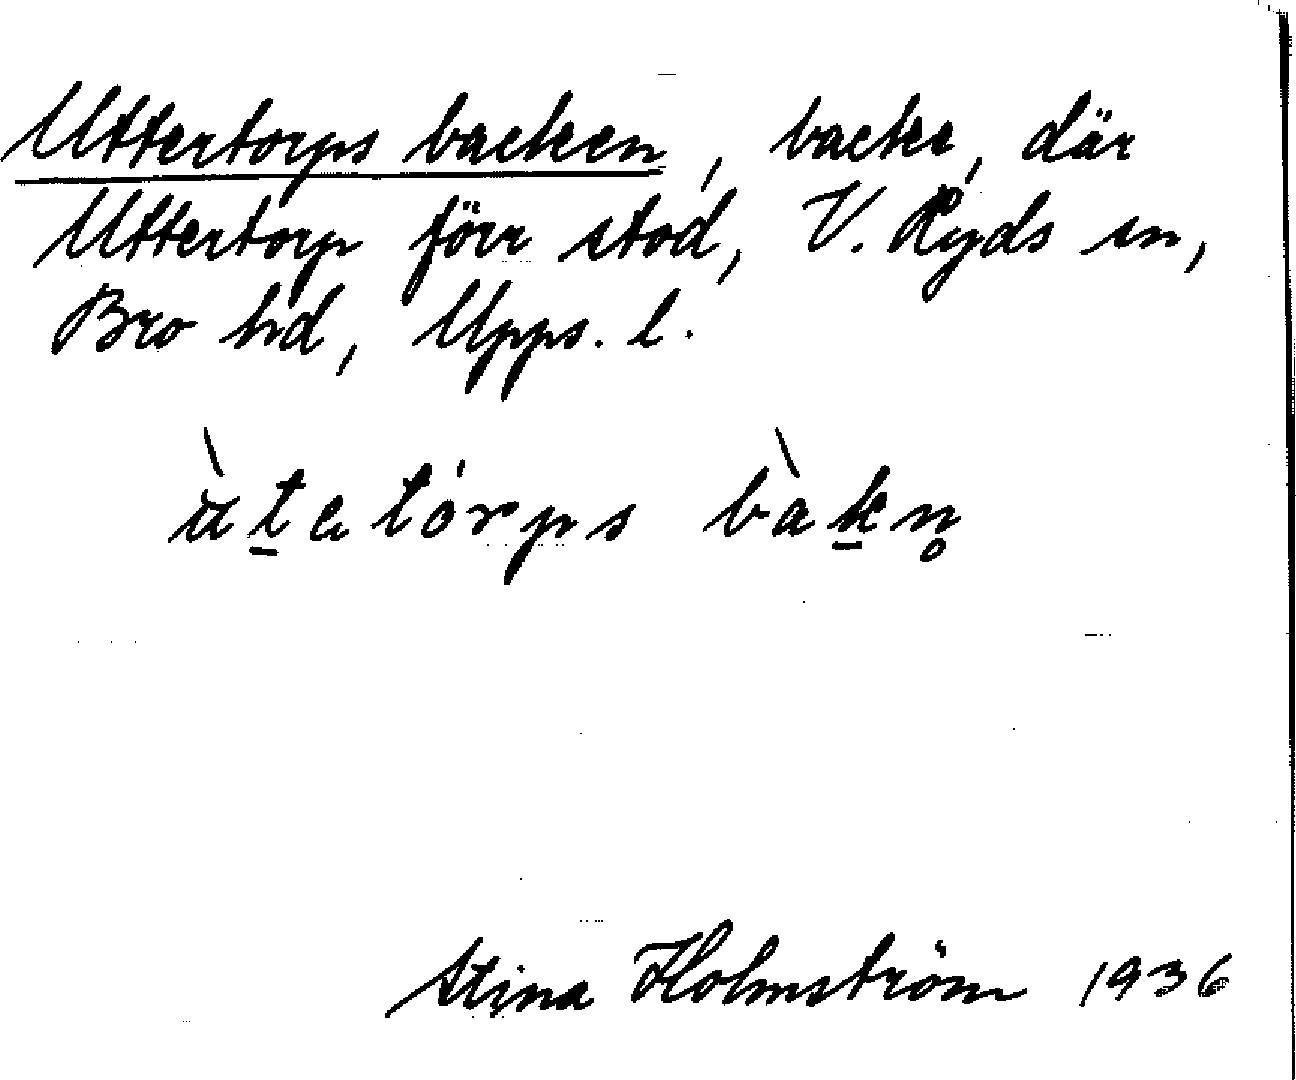 Uttertorps backen, backe, där
Uttertorp förr stod, V. Ryds sn,
Bro hd, Upps. l.
ùtetórps bàkn̥
Stina Holmström 1936